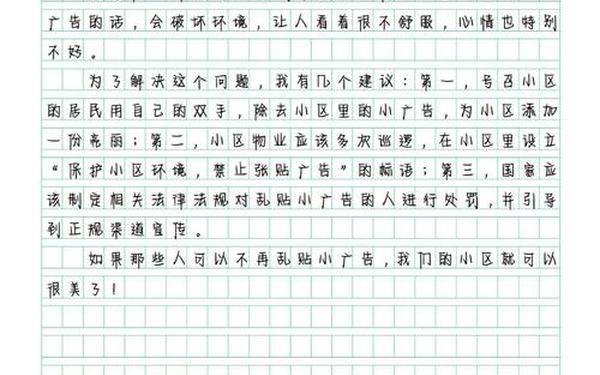 广告的话，会破坏环境，让人看着很不舒服，心情也特别
不好。
为了解决这个问题，我有几个建议：第一，号召小区
的居民用自己的双手，除去小区里的小广告，为小区添加
一份亮丽；第二，小区物业应该多次巡逻，在小区里设立
“保护小区环境，禁止张贴广告”的标语；第三，国家应
该制定相关法律法规对乱贴小广告的人进行处罚，并引导
到正规渠道宣传。
如果那些人可以不再乱贴小广告，我们的小区就可以
很美了！